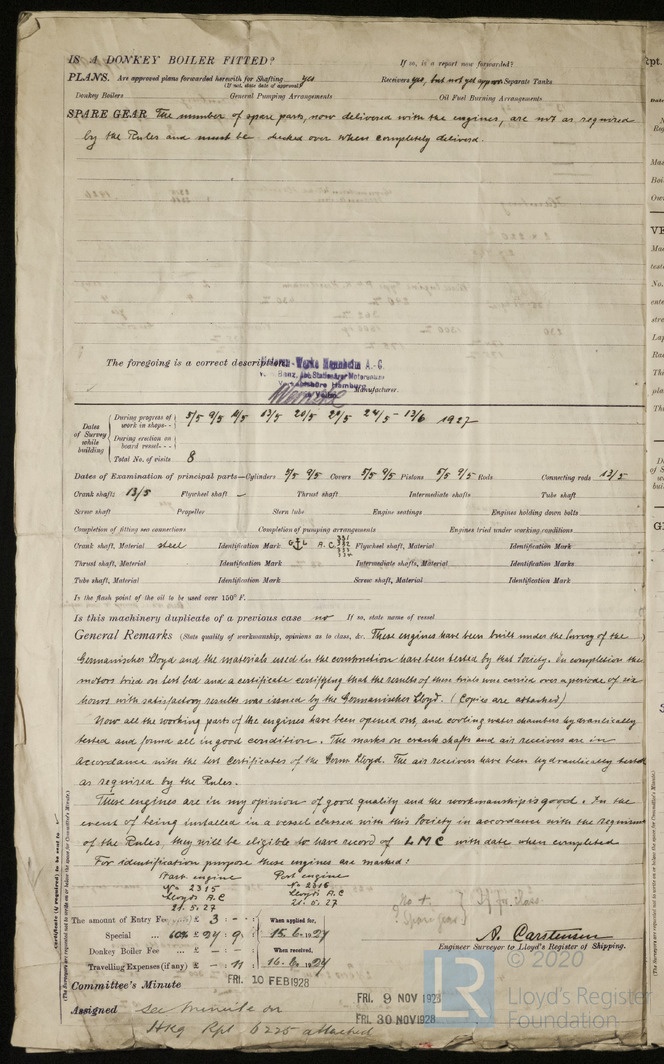 IS A DONKEY BOILER FITTED? If so, is a report now forwarded?
PLANS. Are approved plans forwarded herewith for Shafting yes Receivers yes, but not yet approv Separate Tanks
(If not, state date of approval)
Donkey Boilers General Pumping Arrangements Oil Fuel Burning Arrangements
SPARE GEAR The number of spare parts, now delivered with the engines, are not as required
by the Rules and must be checked over when completely delivered.
The foregoing is a correct description
Motoren-Werke Mannheim A.-G.
Benz, Abt. Stationärer Motorenbau
Hamburg
Manufacturer.
Dates of Survey while building
During progress of work in shops 5/5 9/5 11/5 13/5 20/5 21/5 24/5 - 13/6 1927
During erection on board vessel
Total No. of visits 8
Dates of Examination of principal parts—Cylinders 5/5 9/5 Covers 5/5 9/5 Pistons 5/5 9/5 Rods Connecting rods 13/5
Crank shaft 13/5 Flywheel shaft – Thrust shaft Intermediate shafts Tube shaft
Screw shaft Propeller Stern tube Engine seatings Engines holding down bolts
Completion of fitting sea connections Completion of pumping arrangements Engines tried under working conditions
Crank shaft, Material steel Identification Mark G L A.C. Flywheel shaft, Material Identification Mark
Thrust shaft, Material Identification Mark Intermediate shafts, Material Identification Marks
Tube shaft, Material Identification Mark Screw shaft, Material Identification Mark
Is the flash point of the oil to be used over 150° F.
Is this machinery duplicate of a previous case no If so, state name of vessel
General Remarks (State quality of workmanship, opinions as to class, &c. These engines have been built under the Survey of the
Germanischer Lloyd and the materials used in the construction have been tested by that Society. On completion the
motors tried on test bed and a certificate certifying that the results of these trials was carried over a periode of six
hours with satisfactory results was issued by the Germanischer Lloyd. (Copies are attached)
Now all the working parts of the engines have been opened out, and cooling water chambers hydraulically
tested and found all in good condition. The marks on crank shafts and air receivers are in
accordance with the test certificates of the Germ. Lloyd. The air receivers have been hydraulically tested
as required by the Rules.
These engines are in my opinion of good quality and the workmanship is good. In the
event of being installed in a vessel classed with this Society in accordance with the requirem
of the Rules, they will be eligible to have record of LMC with date when completed
For identification purpose these engines are marked:
Starb. engine Port engine
No 2315 No 2316
Lloyds A.C Lloyds A.C
21.5.27 21.5.27
The amount of Entry Fee £ 3 : – : When applied for,
Special ... 60% £ 24 : 9 : 15.6.1927
Donkey Boiler Fee ... £ – : – : When received,
Travelling Expenses (if any) £ – : 11 : 16.6.1927
A. Carstensen
Engineer Surveyor to Lloyd's Register of Shipping.
Committee's Minute FRI. 10 FEB 1928
FRI. 9 NOV 1928
FRI. 30 NOV 1928
Assigned see minute on
Hbg Rpt 6225 attached
© 2020
LR
Lloyd's Register
Foundation